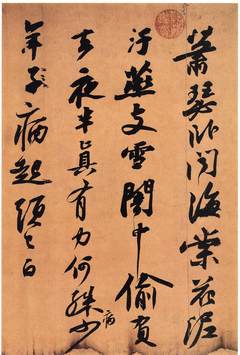 蕭瑟卧聞海棠花泥
汙燕支雪闇中偷負
去夜半真有力何殊少
年子病起頭已白
病